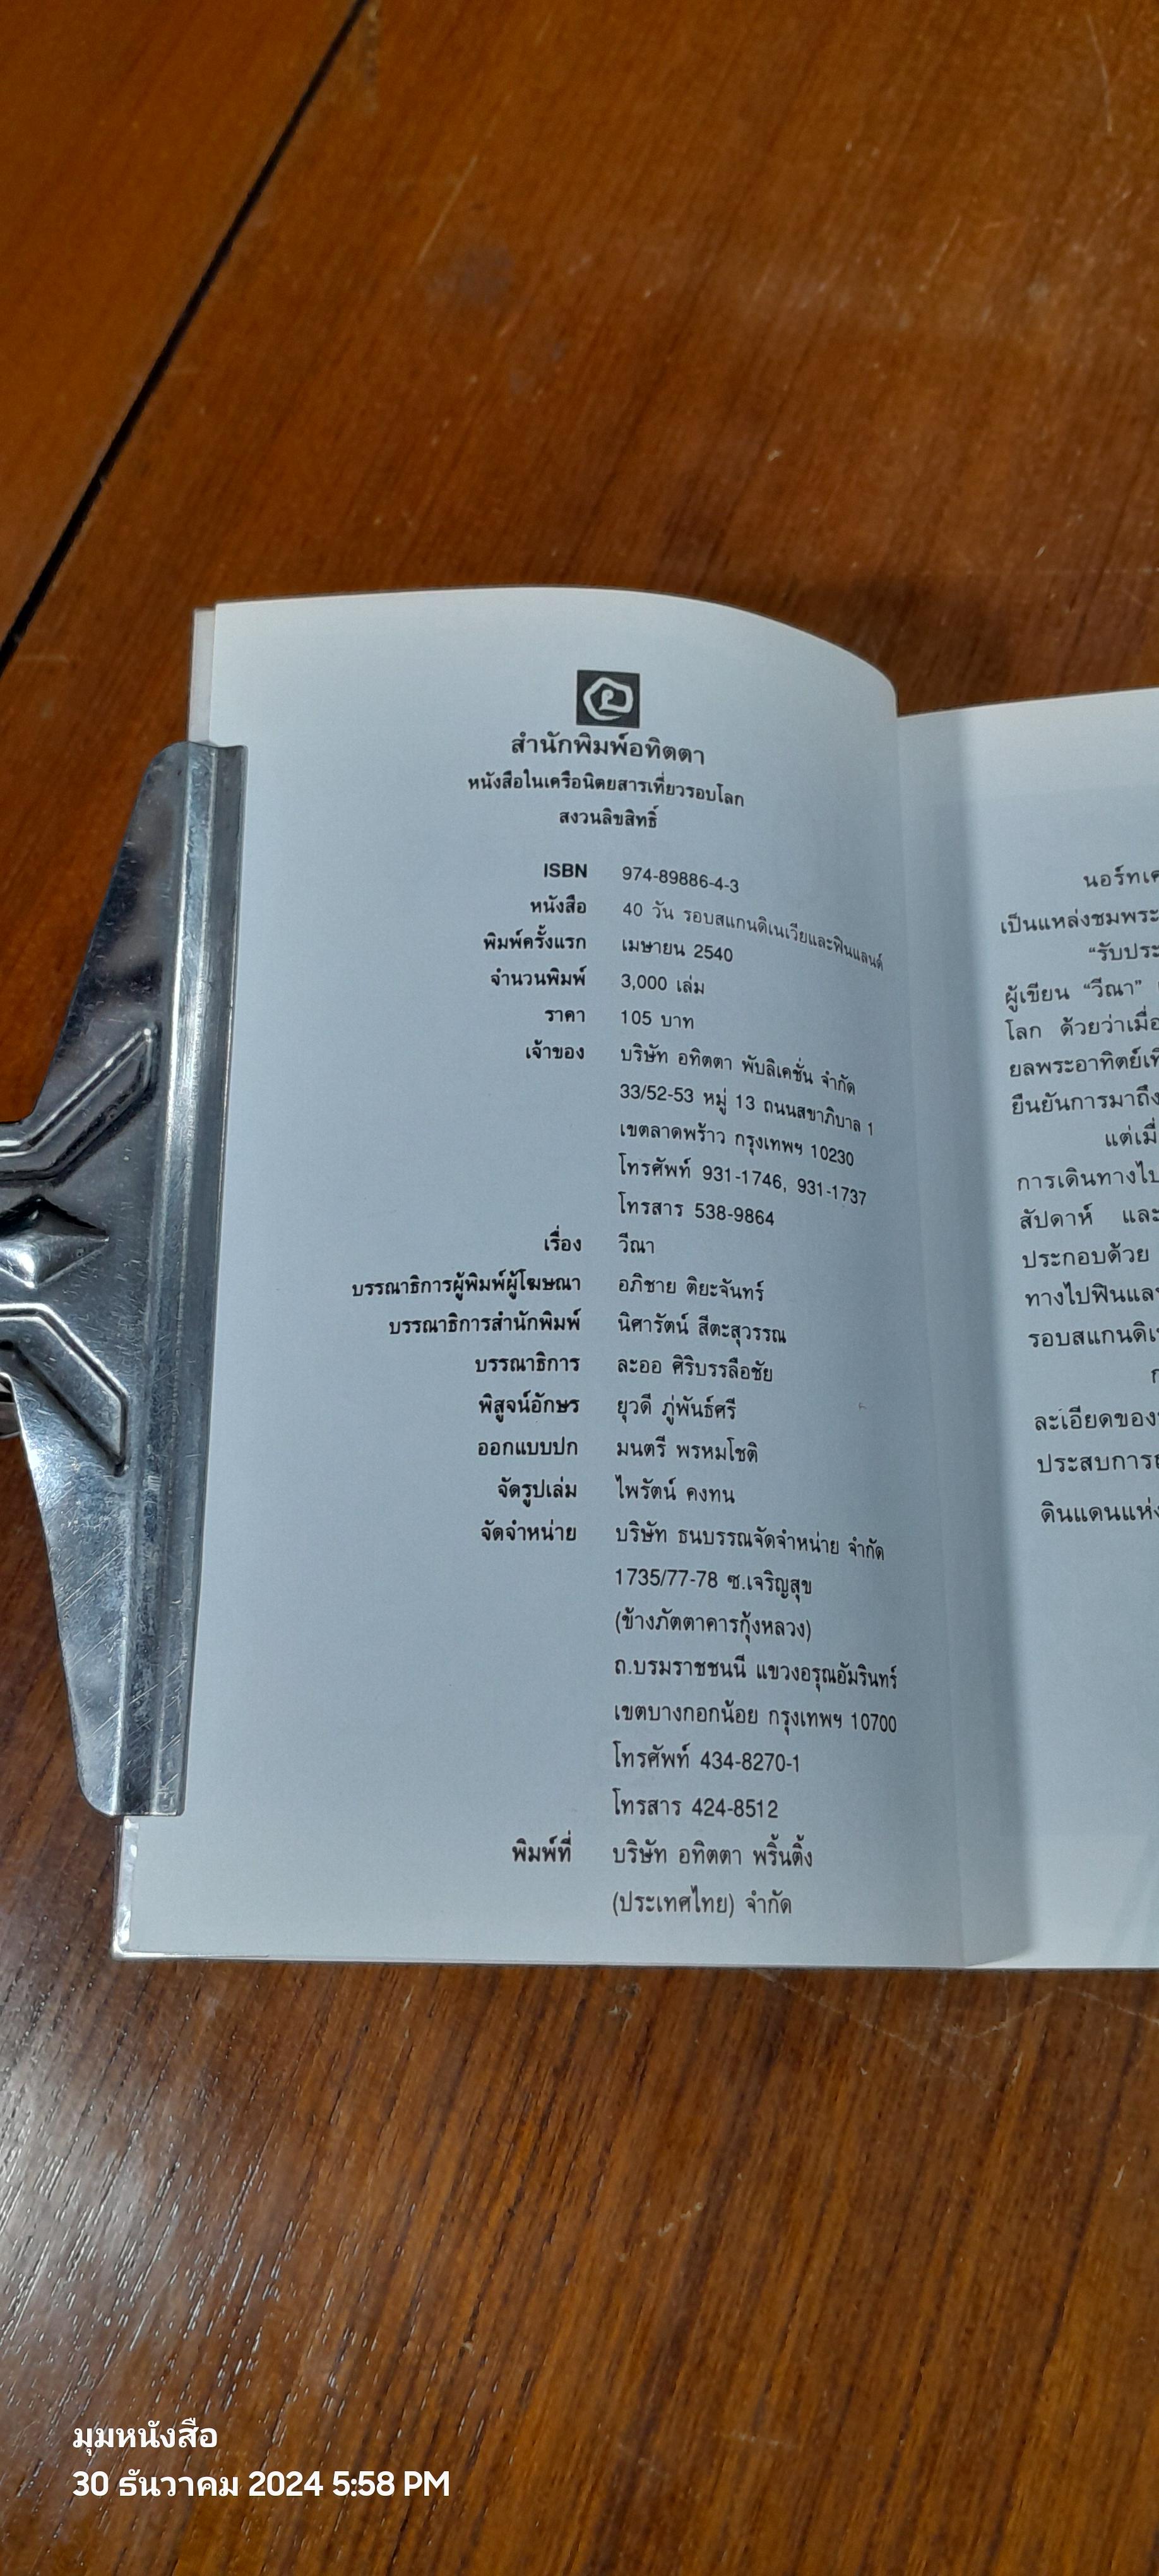 สำนักพิมพ์อทิตตา
หนังสือในเครือนิตยสารเที่ยวรอบโลก
สงวนลิขสิทธิ์
ISBN 974-89886-4-3
หนังสือ 40 วัน รอบสแกนดิเนเวียและฟินแลนด์
พิมพ์ครั้งแรก เมษายน 2540
จำนวนพิมพ์ 3,000 เล่ม
ราคา 105 บาท
เจ้าของ บริษัท อทิตตา พับลิเคชั่น จำกัด
33/52-53 หมู่ 13 ถนนสุขาภิบาล 1
เขตลาดพร้าว กรุงเทพฯ 10230
โทรศัพท์ 931-1746, 931-1737
โทรสาร 538-9864
เรื่อง วีณา
บรรณาธิการผู้พิมพ์ผู้โฆษณา อภิชาย ติยะจันทร์
บรรณาธิการสำนักพิมพ์ นิศารัตน์ สีตะสุวรรณ
บรรณาธิการ ละออ ศิริบรรลือชัย
พิสูจน์อักษร ยุวดี ภู่พันธ์ศรี
ออกแบบปก มนตรี พรหมโชติ
จัดรูปเล่ม ไพรัตน์ คงทน
จัดจำหน่าย บริษัท ธนบรรณจัดจำหน่าย จำกัด
1735/77-78 ซ.เจริญสุข
(ข้างภัตตาคารกุ้งหลวง)
ถ.บรมราชชนนี แขวงอรุณอัมรินทร์
เขตบางกอกน้อย กรุงเทพฯ 10700
โทรศัพท์ 434-8270-1
โทรสาร 424-8512
พิมพ์ที่ บริษัท อทิตตา พริ้นติ้ง
(ประเทศไทย) จำกัด
นอร์ท
เป็นแหล่งชมพระ
“รับประ
ผู้เขียน “วีณา”
โลก ด้วยว่าเมื่อ
ยลพระอาทิตย์เที่
ยืนยันการมาถึง
แต่เมื่
การเดินทางไป
สัปดาห์ และ
ประกอบด้วย
ทางไปฟินแลน
รอบสแกนดิเน
ก
ละเอียดของ
ประสบการณ
ดินแดนแห่ง
มุมหนังสือ
30 ธันวาคม 2024 5:58 PM